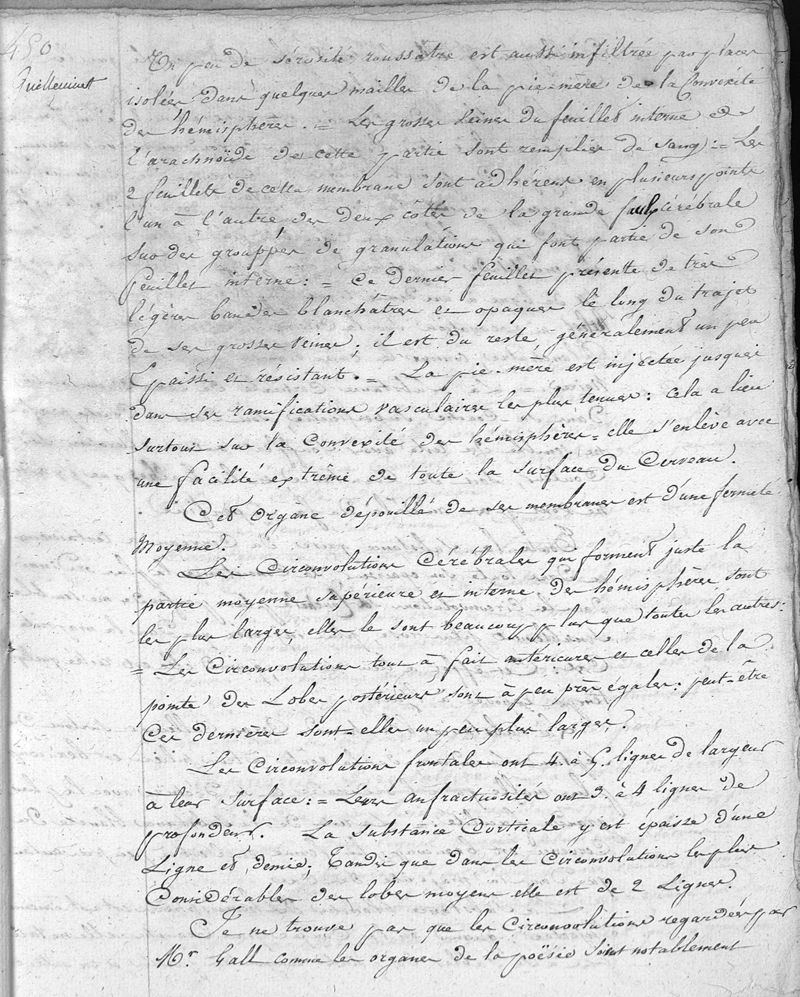 450
Un peu de sérosité roussatre est aussi infiltrée par places
isolées dans quelques mailles de la pie-mère de la Convexité
des hémisphères. = Les grosses Veines du feuillet interne de
l'arachnoïde de cette partie sont remplies de sang: = Les
2 feuillets de cette membrane sont adhérens en plusieurs points
l'un à l'autre des deux côtés de la grande faulx cérébrale
sur des grouppes de granulations qui font partie de son
feuillet interne: = Ce dernier feuillet présente de très
légères bandes blanchâtres et opaques le long du trajet
de ses grosses veines; il est du reste, généralement un peu
Epaissi et résistant. = La pie-mère est injectée jusques
dans ses ramifications vasculaires les plus tenues: Cela a lieu
surtout sur la Convexité des hémisphères = elle s'enlève avec
une facilité extrême de toute la surface du Cerveau.
Cet Organe dépouillé de ses membranes est d'une fermeté
Moyenne.
Les Circonvolutions Cérébrales qui forment juste la
partie moyenne supérieure et interne des hémisphères sont
les plus larges, elles le sont beaucoup plus que toutes les autres:
= Les Circonvolutions tout à fait antérieures et celles de la
pointe des Lobes postérieurs sont à peu près égales: peut-être
Ces dernières sont-elles un peu plus larges.
Les Circonvolutions frontales ont 4. à 5. lignes de largeur
à leur surface: = Leurs anfractuosités ont 3. à 4 lignes de
profondeur. La substance Corticale y est épaisse d'une
Ligne et demie; Tandis que dans les Circonvolutions les plus
Considérables des lobes moyens elle est de 2 Lignes.
Je ne trouve pas que les Circonvolutions regardées par
Mr. Gall comme les organes de la poësie soient notablement